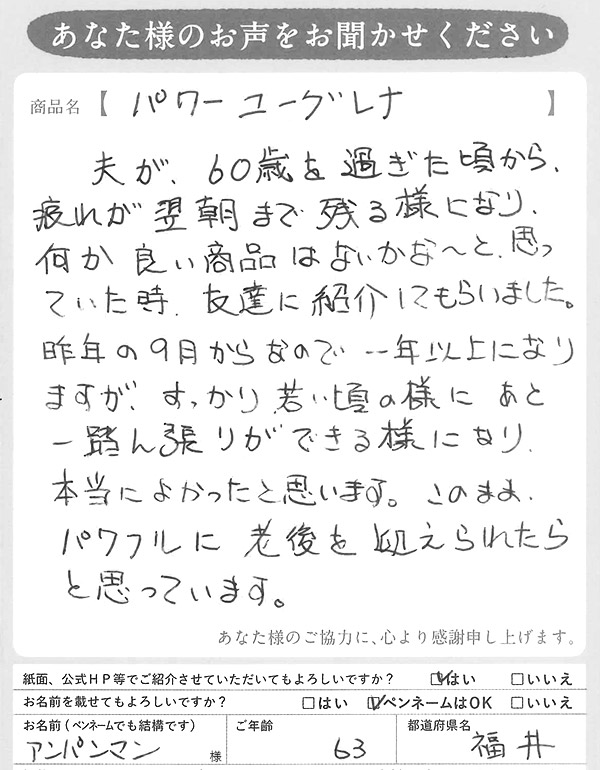 あなた様のお声をお聞かせください
商品名【 パワーユーグレナ 】
夫が、60歳を過ぎた頃から、
疲れが翌朝まで残る様になり、
何か良い商品はないかな〜と、思っ
ていた時、友達に紹介してもらいました。
昨年の9月からなので一年以上になり
ますが、すっかり若い頃の様にあと
一踏ん張りができる様になり、
本当によかったと思います。このまま、
パワフルに老後を迎えられたら
と思っています。
あなた様のご協力に、心より感謝申し上げます。
紙面、公式HP等でご紹介させていただいてもよろしいですか? ☑はい □いいえ
お名前を載せてもよろしいですか? □はい ☑ペンネームはOK □いいえ
お名前(ペンネームでも結構です) ご年齢 都道府県名
アンパンマン 様 63 福井